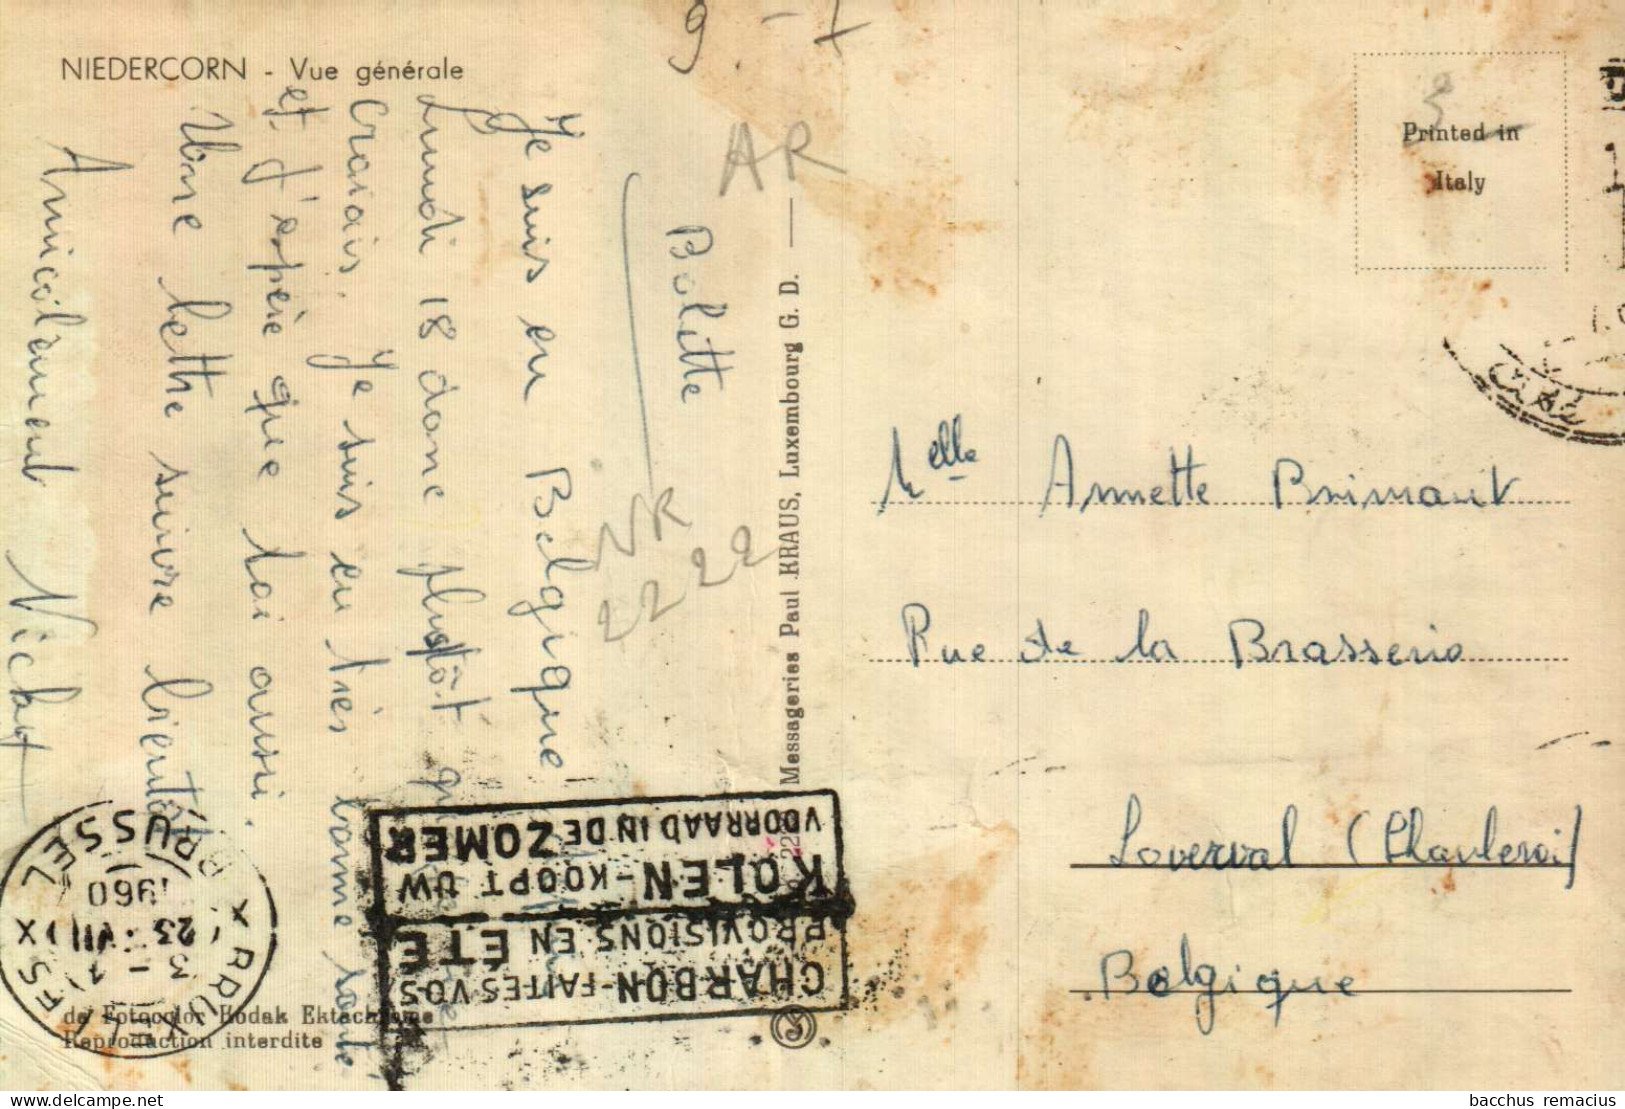 NIEDERCORN - Vue générale
9 - 7
AR
Bolette
Je suis en Belgique
Lundi 18 donc plustôt
Crarais. Je suis en très bonne santé
et j'espère que toi aussi.
Une lettre suivre bientôt
Amicol'ement Vicky
NR
2222
Messageries Paul KRAUS, Luxembourg G. D.
Printed in
Italy
Melle Annette Brimant
Rue de la Brasserie
Loverval (Charleroi)
Belgique
CHARBON-FAITES VOS
PROVISIONS EN ÉTÉ
KOLEN-KOOPT UW
VOORRAAD IN DE ZOMER
BRUXELLES X BRUSSEL X
23 VII
1960
da Fotocolor Kodak Ektachrome
Reproduction interdite
bacchus remacius